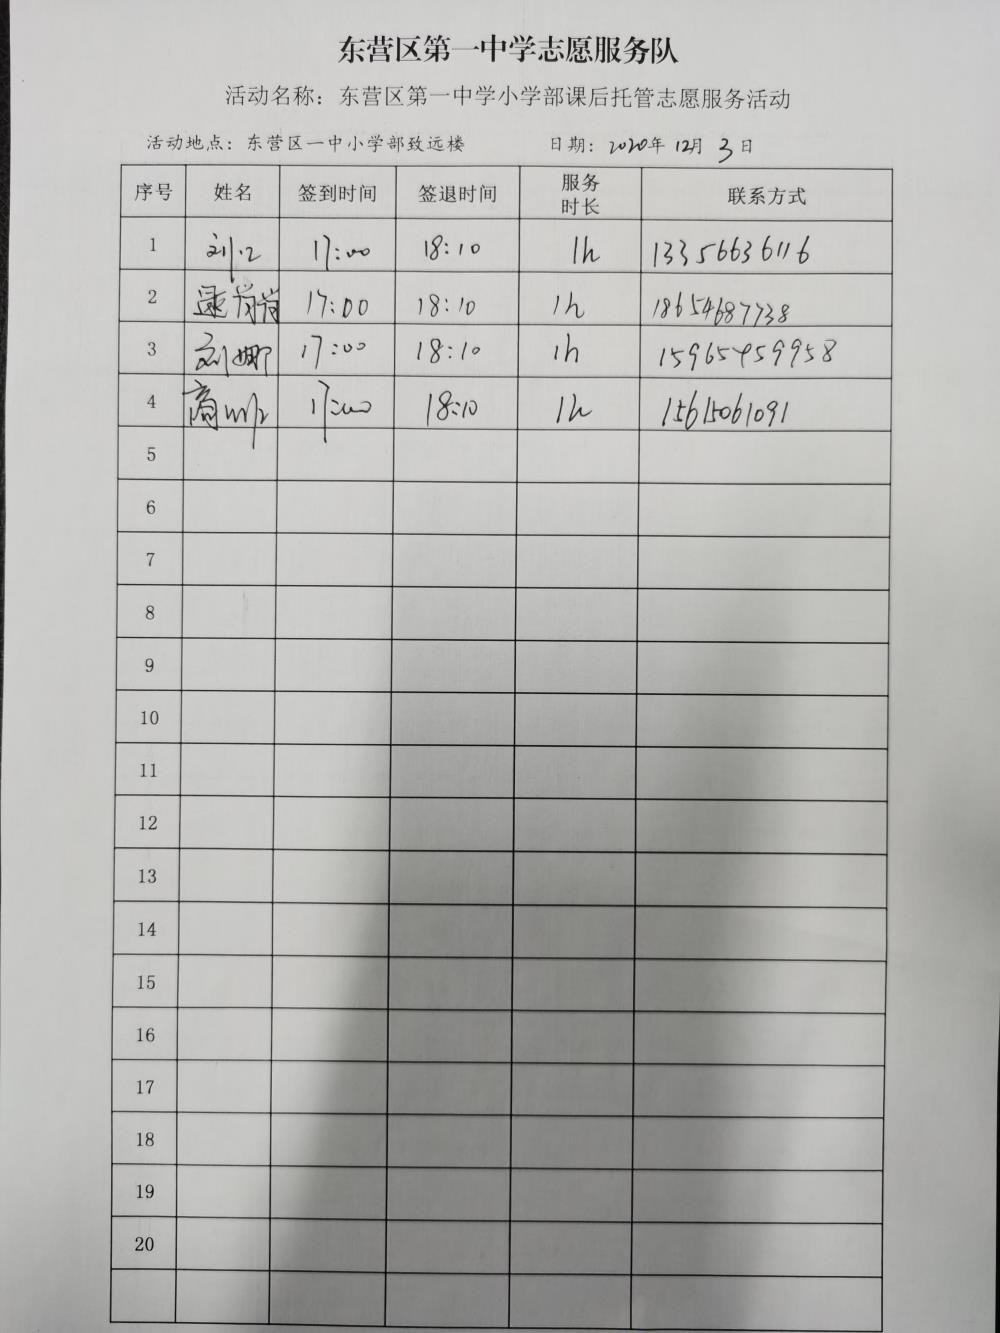 东营区第一中学志愿服务队
活动名称：东营区第一中学小学部课后托管志愿服务活动
活动地点：东营区一中小学部致远楼 日期：2020年 12月 3日
序号 姓名 签到时间 签退时间 服务时长 联系方式
1 17:00 18:10 1h 13356636116
2 17:00 18:10 1h 18654687738
3 刘娜 17:00 18:10 1h 15965459958
4 商 17:00 18:10 1h 15615061091
5
6
7
8
9
10
11
12
13
14
15
16
17
18
19
20